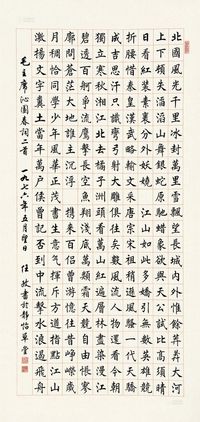 北國風光千里冰封萬里雪飄望長城內外惟餘莽莽大河
上下頓失滔滔山舞銀蛇原馳蠟象欲與天公試比高須晴
日看紅裝素裹分外妖嬈 江山如此多嬌引無數英雄競
折腰惜秦皇漢武略輸文采唐宗宋祖稍遜風騷一代天驕
成吉思汗只識彎弓射大雕俱往矣數風流人物還看今朝
獨立寒秋湘江北去橘子洲頭看萬山紅遍層林盡染漫江
碧透百舸爭流鷹擊長空魚翔淺底萬類霜天競自由悵寥
廓問蒼茫大地誰主沉浮 攜來百侶曾遊憶往昔崢嶸歲
月稠恰同學少年風華正茂書生意氣揮斥方遒指點江山
激揚文字糞土當年萬戶侯曾記否到中流擊水浪遏飛舟
毛主席沁園春詞二首 一九七六年五月望日 任政書於靜怡草堂